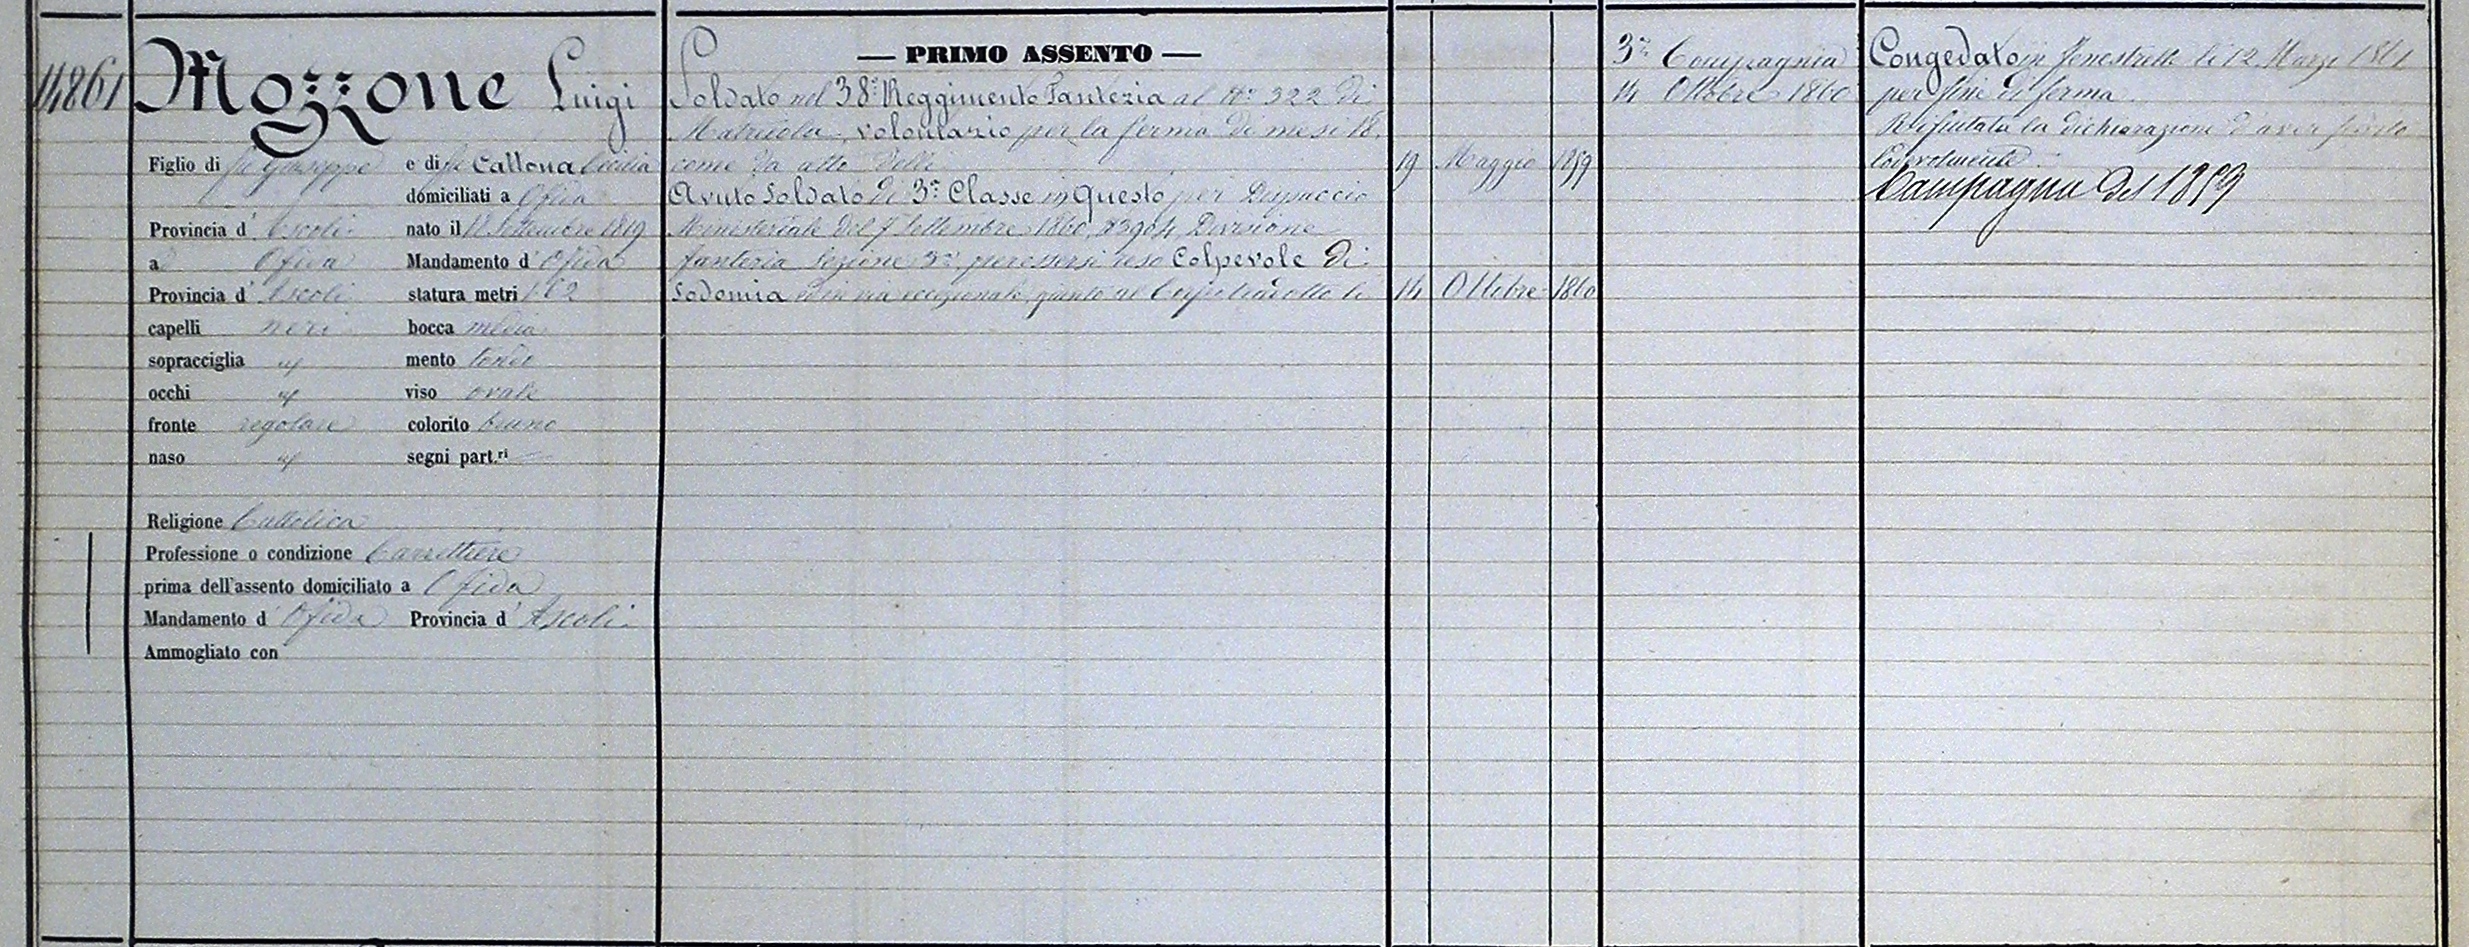 14861
Mozzone Luigi
Figlio di fu Giuseppe e di fu Cattona Cecilia
domiciliati a Ofida
Provincia d' Ascoli nato il 18 Settembre 1819
a Ofida Mandamento d' Ofida
Provincia d' Ascoli statura metri 1.62
capelli neri bocca media
sopracciglia id mento tondo
occhi id viso ovale
fronte regolare colorito bruno
naso id segni part.ri
Religione Cattolica
Professione o condizione Carrettiere
prima dell'assento domiciliato a Ofida
Mandamento d' Ofida Provincia d' Ascoli
Ammogliato con
— PRIMO ASSENTO —
Soldato nel 38° Reggimento Fanteria al N° 322 di
Matricola, volontario per la ferma di mesi 18
come da atto delli 19 Maggio 1859
Avuto Soldato di 3a Classe in Questo per Dispaccio
Ministeriale del 7 Settembre 1860, N° 3904 Divisione
fanteria Sezione 3a per essersi reso Colpevole di
Sodomia ed in via eccezionale, giunto al Corpo tradotto li 14 Ottobre 1860
3a Compagnia
14 Ottobre 1860
Congedato in Fenestrelle li 12 Marzo 1861
per fine di ferma
Rifiutata la dichiarazione d'aver servito
lodevolmente.
Campagna del 1859